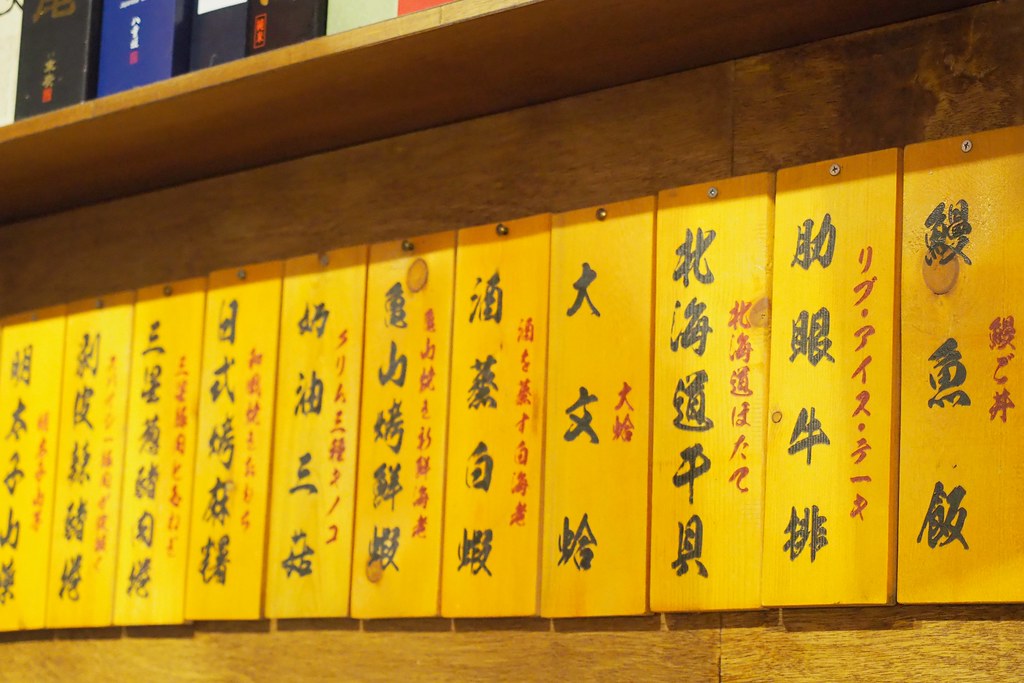 鰻ご丼
鰻魚飯
リブ・アイス・テーキ
肋眼牛排
北海道ほたて
北海道干貝
大蛤
大文蛤
酒を蒸す白海老
酒蒸白蝦
亀山焼き新鮮海老
龜山烤鮮蝦
クリム三種キノコ
奶油三菇
日式烤麻糬
三星蔥豬肉捲
剝皮辣豬捲
明太子山芋
明太子山藥